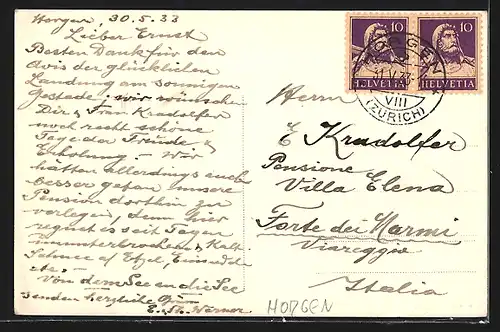 Horgen, 30.5.33
Lieber Ernst
Besten Dank für den
Avis der glücklichen
Landung am sonnigen
Gestade, wir wünschen
Dir & Frau Kradolfer
noch recht schöne
Tage der Freude &
Erholung – Wir
hätten allerdings auch
besser getan unsere
Pension dorthin zu
verlegen, denn hier
regnet es seit Tagen
ununterbrochen & Kalt.
Schnee a/ Etzel, Einsiedeln
etc. –
Von dem See an die See
senden herzliche Grüsse
Werner
10 10
HELVETIA HELVETIA
HORGEN
31.V.33
VIII
(ZÜRICH)
Herrn
E Kradolfer
Pensione
Villa Elena
Forte dei Marmi
Viareggio
Italia
HORGEN